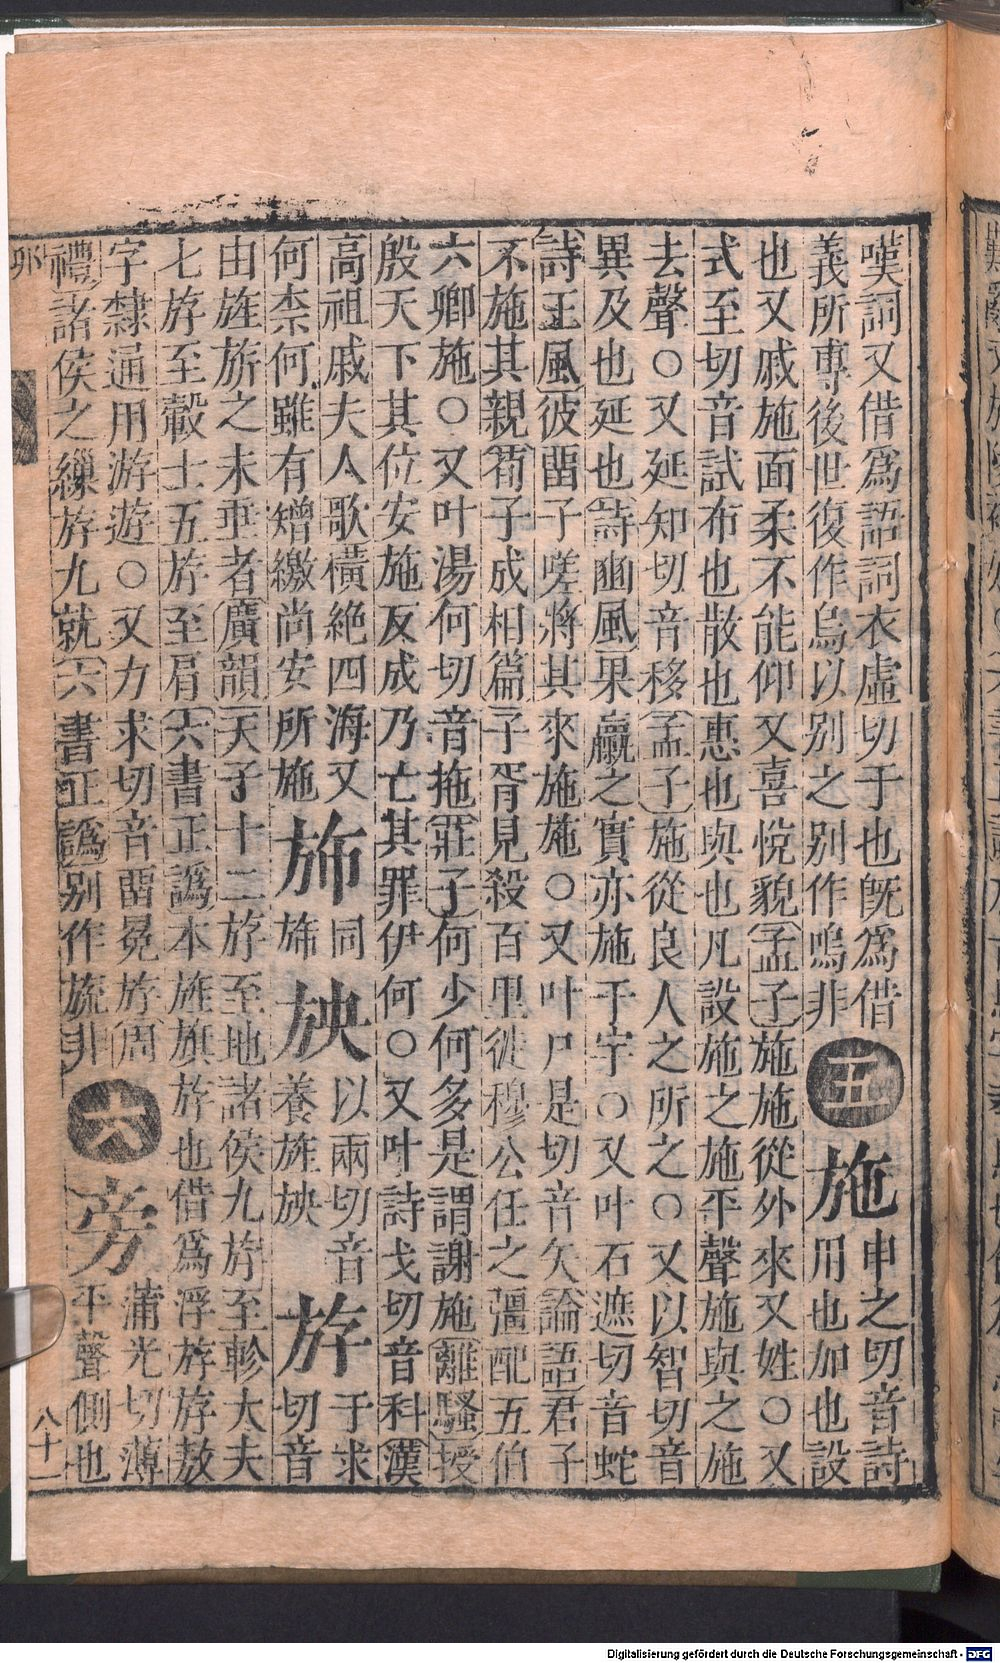 嘆詞又借爲語詞衣虛切于也旣爲借
義所專後世復作烏以别之别作嗚非
五
施
申之切音詩
用也加也設
也又戚施面柔不能仰又喜悅貌孟子施施從外來又姓○又
式至切音試布也散也惠也與也凡設施之施平聲施與之施
去聲○又延知切音移孟子施從良人之所之○又以智切音
異及也延也詩豳風果臝之實亦施于宇○又叶石遮切音蛇
詩王風彼畱子嗟將其來施施○又叶尸是切音矢論語君子
不施其親荀子成相篇子胥見殺百里徙穆公任之彊配五伯
六卿施○又叶湯何切音拖莊子何少何多是謂謝施離騷授
殷天下其位安施反成乃亡其罪伊何○又叶詩戈切音科漢
高祖戚夫人歌橫絕四海又
何柰何雖有矰繳尚安所施
斾
同
㫊
以兩切音
養旌㫊
斿
于求
切音
由旌旂之末垂者廣韻天子十二斿至地諸侯九斿至軫大夫
七斿至轂士五斿至肩六書正譌本旌旗斿也借爲浮斿斿敖
字隸通用游遊○又力求切音畱冕斿周
禮諸侯之繅斿九就六書正譌别作旒非
六
旁
蒲光切薄
平聲側也
八十一
Digitalisierung gefördert durch die Deutsche Forschungsgemeinschaft - DFG